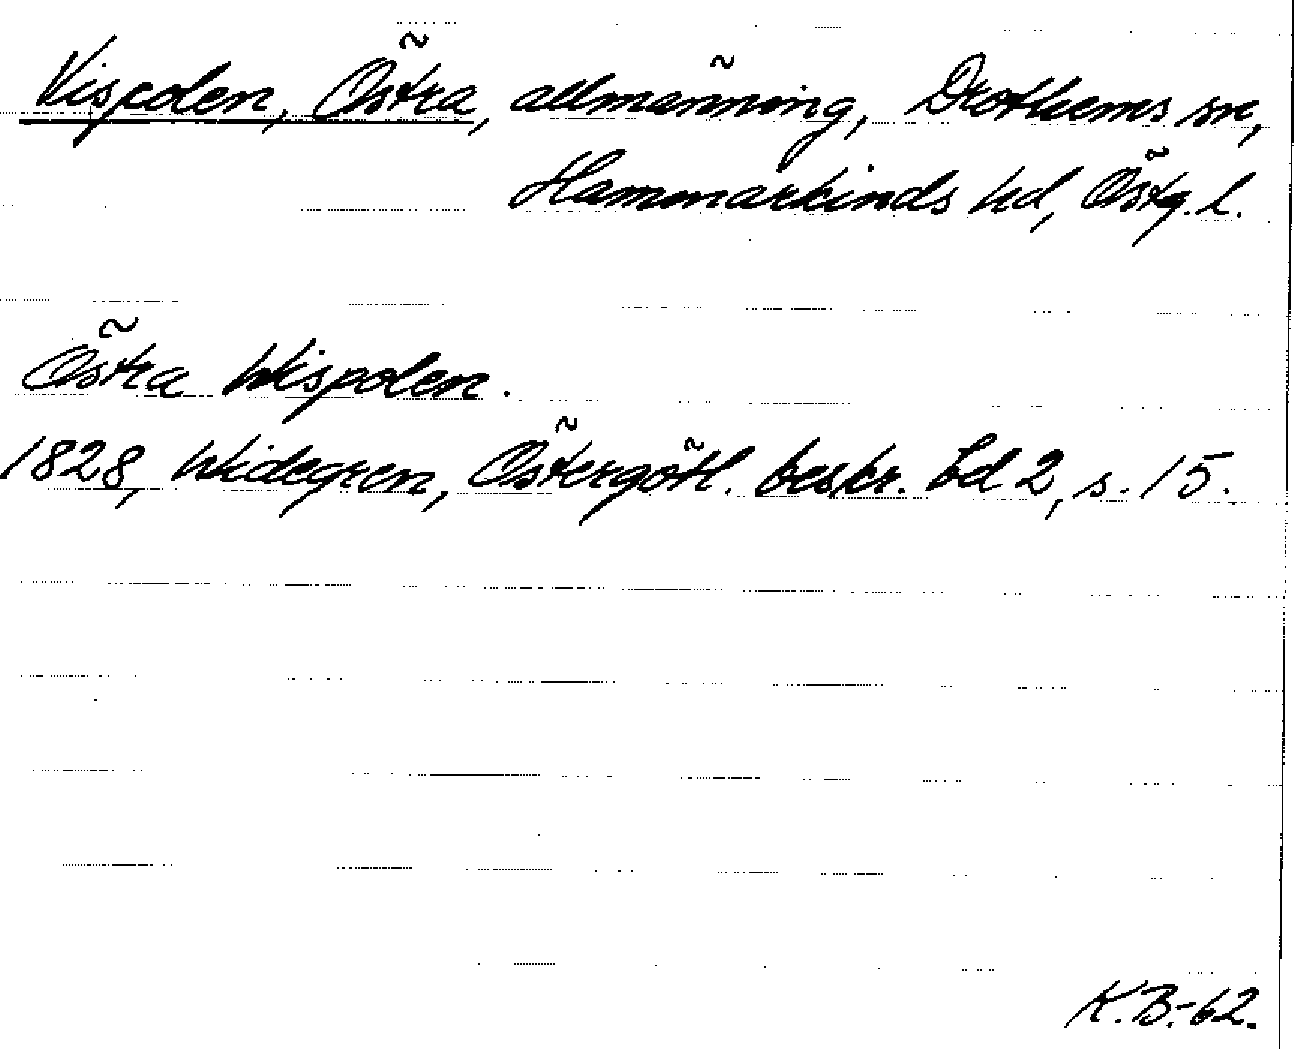 Vispolen, Östra, allmänning, Drothems sn,
Hammarkinds hd, Östg. l.
Östra Wispolen.
1828, Widegren, Östergötl. beskr. bd 2, s. 15.
K.B.-62.